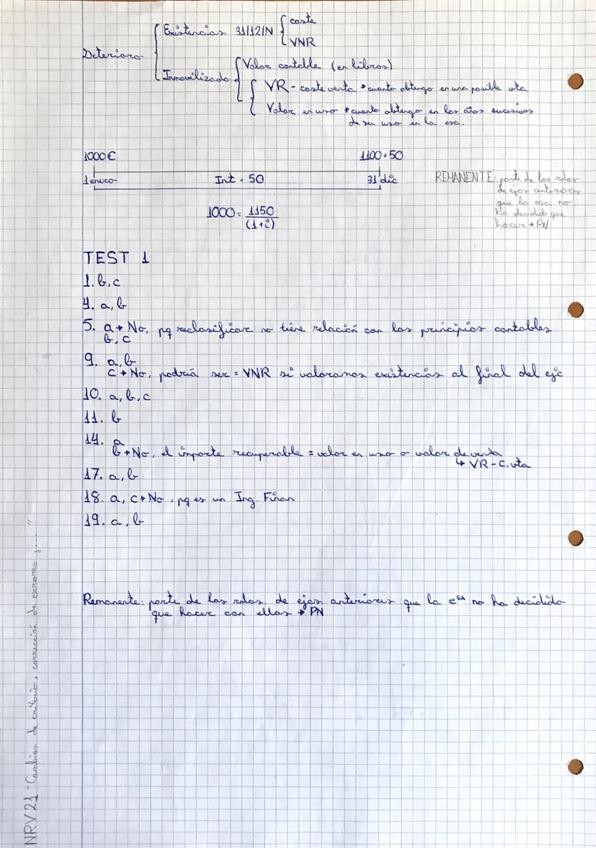 Deterioro
Existencias 31/12/N
coste
VNR
Inmovilizado
Valor contable (en libros)
VR - coste venta → cuanto obtengo en una posible vta
Valor en uso → cuanto obtengo en los años sucesivos
de su uso en la esa.
1000€ 1100+50
1 enero Int = 50 31 dic
1000 = 1150
(1+i)
REMANENTE: parte de los rdos
de ejos anteriores
que la esa no
ha decidido que
hacer → PN
TEST 1
1. b, c
4. a, b
5. a → No, pq reclasificar no tiene relación con los principios contables
b, c
9. a, b
c → No, podría ser = VNR si valoramos existencias al final del ejc
10. a, b, c
11. b
14. a
b → No, el importe recuperable = valor en uso o valor de venta
↳ VR - C. vta
17. a, b
18. a, c → No, pq es un Ing. Finan
19. a, b
Remanente: parte de los rdos. de ejos anteriores que la esa no ha decidido
que hacer con ellos → PN
NRV 21 - Cambios de criterio, corrección de errores y..."